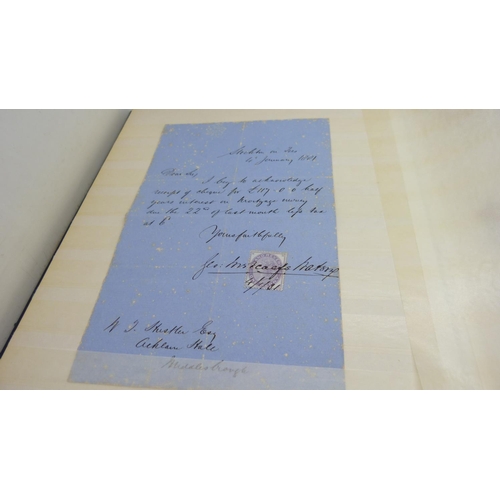 Stockton on Tees
4 January 1881
Dear Sir I beg to acknowledge
receipt of cheque for £117. 0. 0 half
years interest on Mortgage money
due the 22nd of last month less tax
at 6d
Yours faithfully
Geo.
4/1/81
Esq
Acklam Hall
Middlesbrough